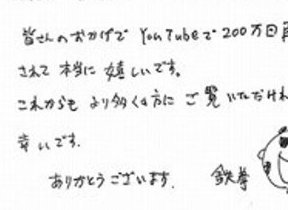 皆さんのおかげで YouTubeで200万回再
されて本当に嬉しいです。
これからも より多くの方に ご覧いただけれ
幸いです.
ありがとうございます. 鉄拳